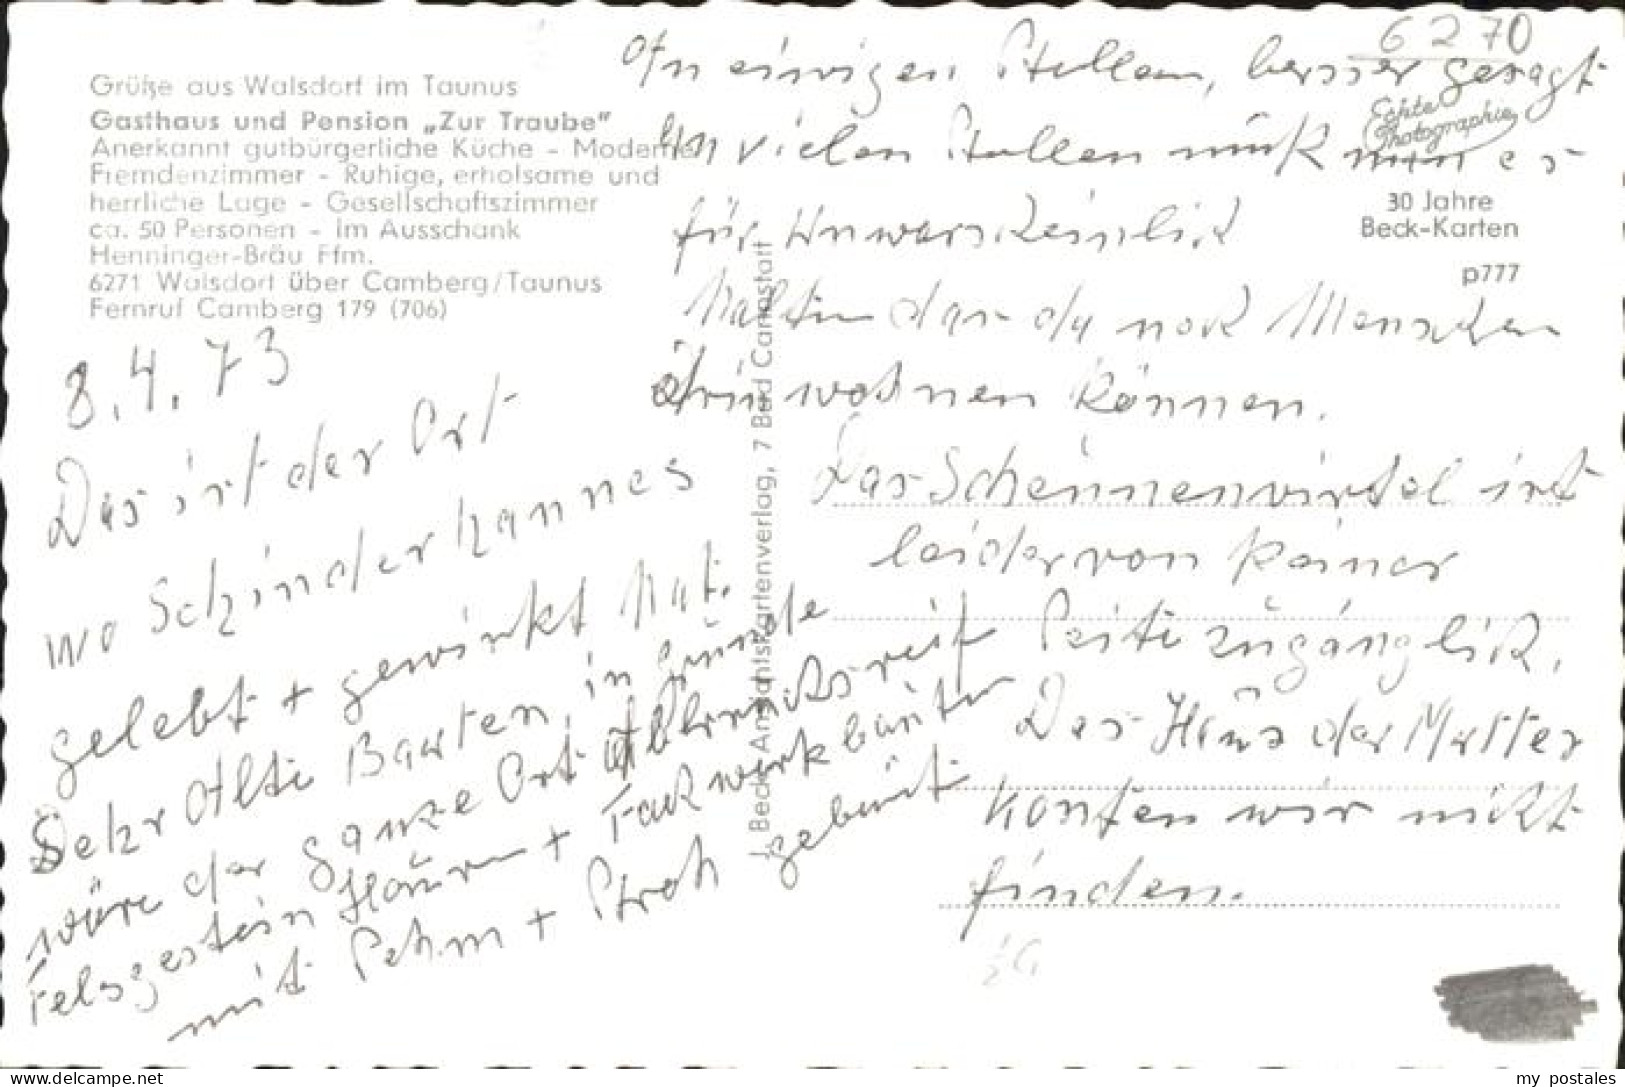 Grüße aus Walsdorf im Taunus
Gasthaus und Pension „Zur Traube"
Anerkannt gutbürgerliche Küche - Moderne
Fremdenzimmer - Ruhige, erholsame und
herrliche Lage - Gesellschaftszimmer
ca. 50 Personen - im Ausschank
Henninger-Bräu Ffm.
6271 Walsdorf über Camberg/Taunus
Fernruf Camberg 179 (706)
8.4.73
Das ist der Ort
wo Schinderhannes
gelebt + gewirkt hat.
Sehr Alte Bauten, im Grunde
wäre der ganze Ort Abbruchsreif
Felsgestein Häuser + Fachwerkbauten
mit Lehm + Stroh gebaut
6270
An einigen Stellen, besser gesagt
an vielen Stellen muß man es
für Unwarscheinlich
halten das da noch Menschen
drin wohnen können.
Das Scheunenvirtel ist
leider von keiner
Seite zugänglich.
Das Haus der Mutter
konten wir nicht
finden.
Echte
Photographie
30 Jahre
Beck-Karten
p777
Beck Ansichtskartenverlag, 7 Bad Cannstatt
my postales
www.delcampe.net